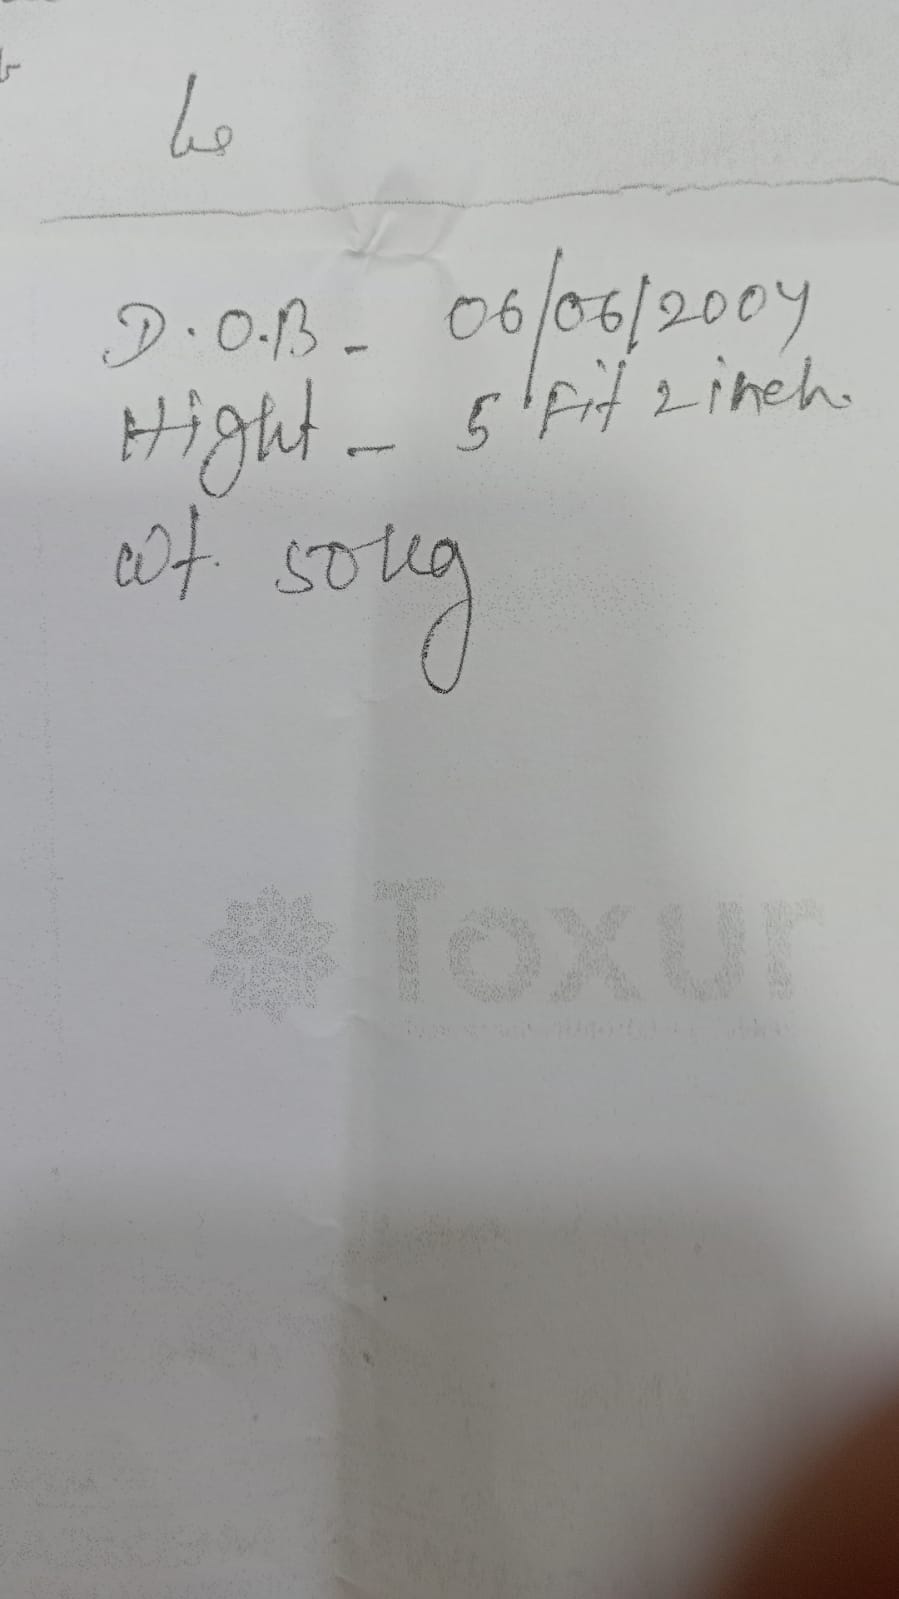 D.O.B - 06/06/2004
Hight - 5 Fit 2 inch.
wt. 50kg
Toxur